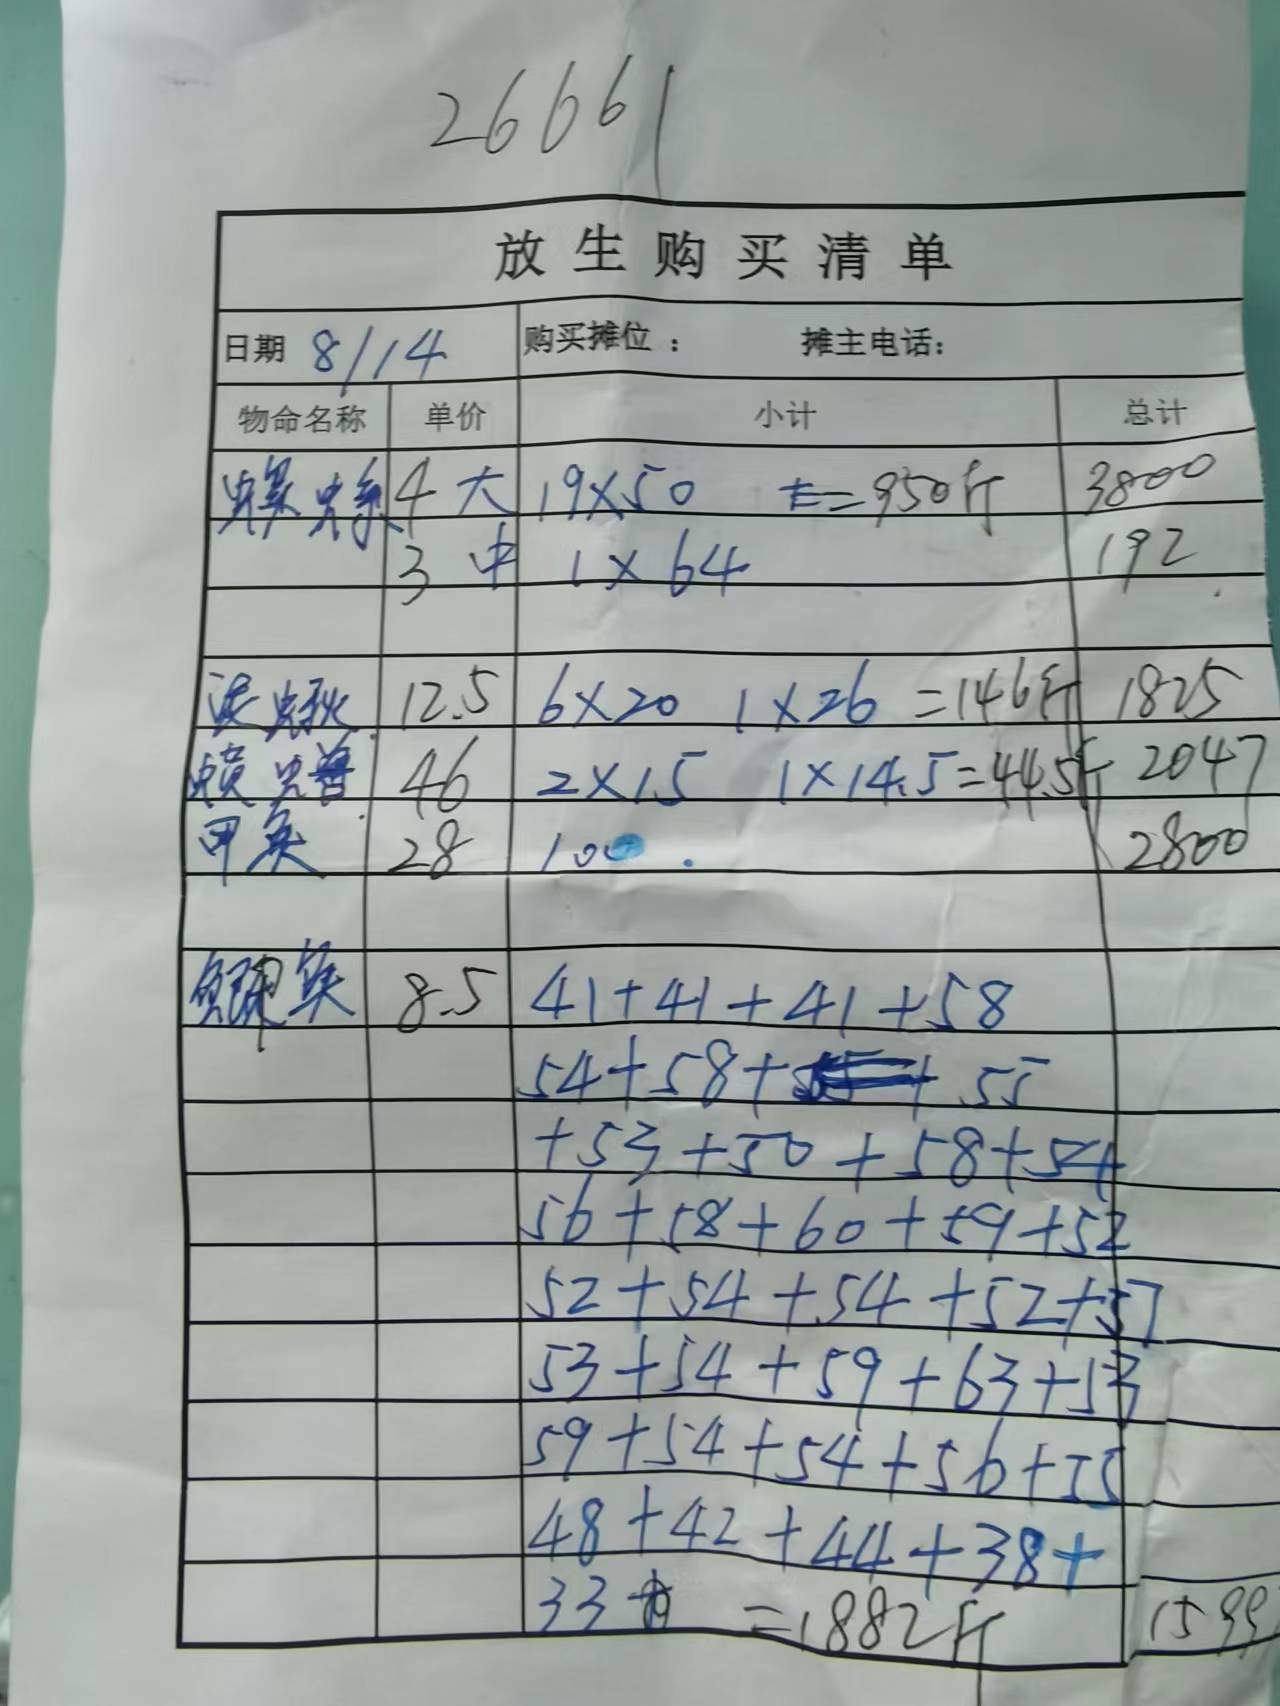 26661
放生购买清单
日期 8/14 购买摊位： 摊主电话：
物命名称 单价 小计 总计
螺蛳 4 大 19×50 =950斤 3800
3 中 1×64 192
泥鳅 12.5 6×20 1×26 =146斤 1825
黄鳝 46 2×15 1×14.5=44.5斤 2047
甲鱼 28 100 2800
鱼 8.5 41+41+41+58
54+58+ 55
+53+50+58+54
56+58+60+59+52
52+54+54+52+57
53+54+59+63+53
59+54+54+56+55
48+42+44+38+
33 =1882斤 1599